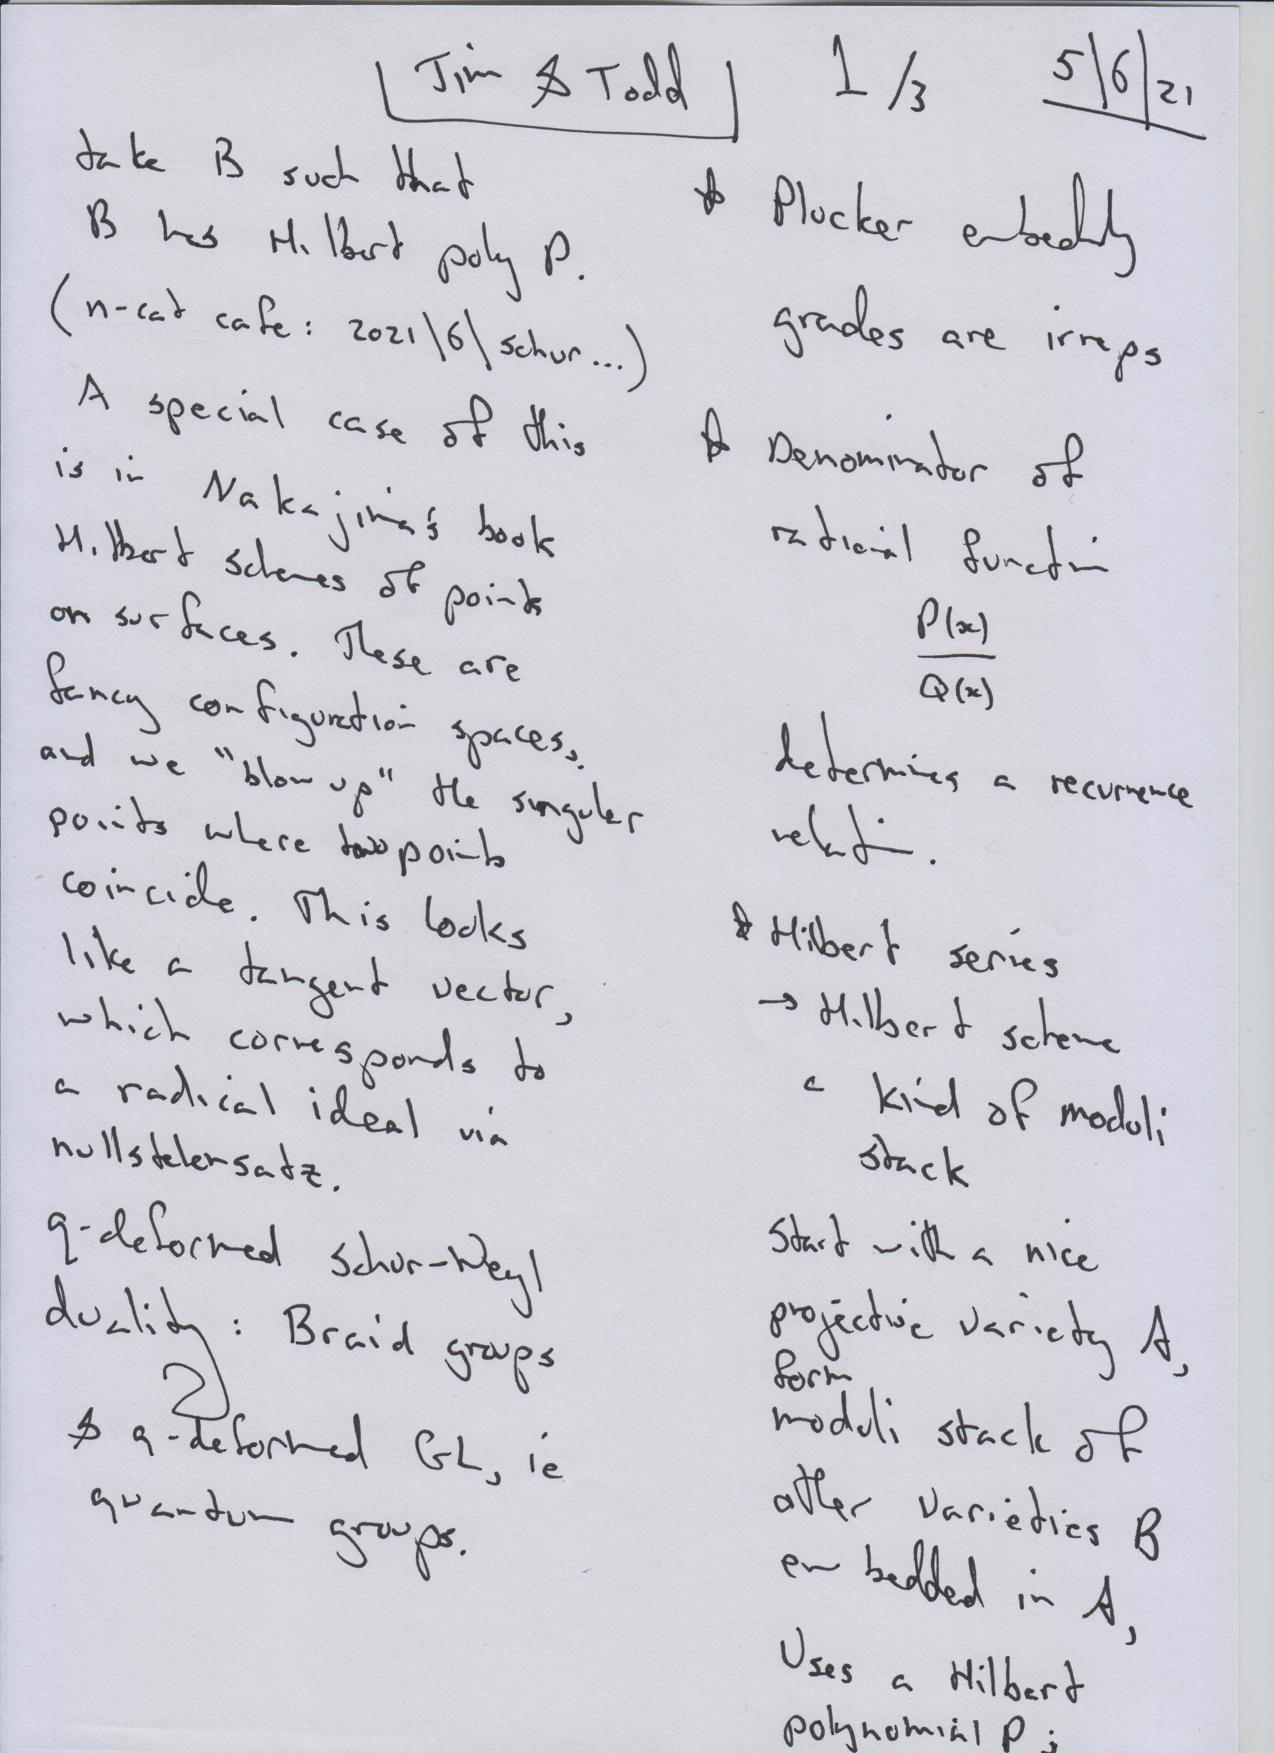 Jim & Todd 1/3 5|6|21
take B such that
B has Hilbert poly P.
(n-cat cafe: 2021\6\schur...)
A special case of this
is in Nakajima's book
Hilbert schemes of points
on surfaces. These are
fancy configuration spaces,
and we "blow up" the singular
points where two points
coincide. This looks
like a tangent vector,
which corresponds to
a radical ideal via
nullstelensatz.
q-deformed Schur-Weyl
duality: Braid groups
& q-deformed GL, ie
quantum groups.
* Plucker embedding
grades are irreps
* Denominator of
rational function
P(x)
Q(x)
determines a recurrence
relation.
* Hilbert series
→ Hilbert scheme
a kind of moduli
stack
Start with a nice
projective variety A,
form
moduli stack of
other varieties B
embedded in A,
Uses a Hilbert
polynomial P;